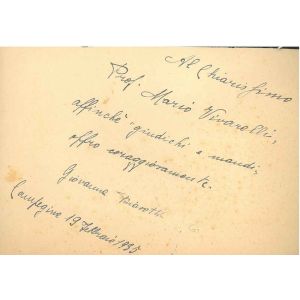 Al Chiarissimo
Prof. Mario Vivarelli,
affinchè giudichi e mandi,
offro coraggiosamente.
Giovanna
Campegine 19 Febbraio 1935